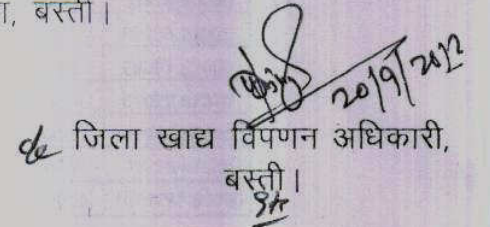 , बस्ती।
20/9/2012
जिला खाद्य विपणन अधिकारी,
बस्ती।